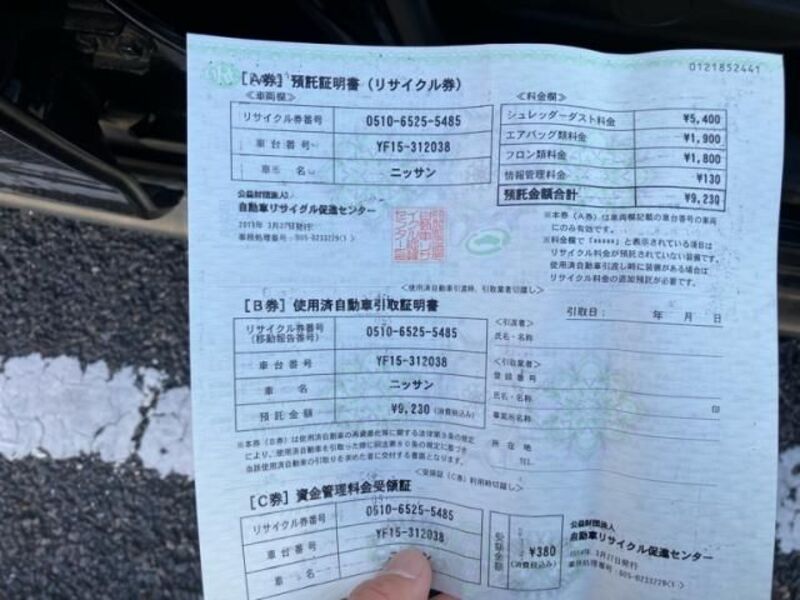 0121852441
[A券] 預託証明書(リサイクル券)
≪車両欄≫
リサイクル券番号 0510-6525-5485
車台番号 YF15-312038
車名 ニッサン
≪料金欄≫
シュレッダーダスト料金 ¥5,400
エアバッグ類料金 ¥1,900
フロン類料金 ¥1,800
情報管理料金 ¥130
預託金額合計 ¥9,230
公益財団法人
自動車リサイクル促進センター
3月27日発行
※本券(A券)は車両欄記載の車台番号の車両
にのみ有効です。
※料金欄で「*****」と表示されている項目は
リサイクル料金が預託されていない装備です。
使用済自動車引渡し時に装備がある場合は
リサイクル料金の追加預託が必要です。
<使用済自動車引渡時、引取業者切離し>
[B券] 使用済自動車引取証明書
リサイクル券番号
(移動報告番号) 0510-6525-5485
車台番号 YF15-312038
車名 ニッサン
預託金額 ¥9,230 (消費税込み)
引取日: 年 月 日
<引渡者>
氏名・名称
<引取業者>
登録番号
氏名・名称
印
事業所名称
所在地
TEL
※本券(B券)は使用済自動車の再資源化等に関する法律
により、使用済自動車を引取った際に同法第80条の規定に基づき
当該使用済自動車の引取りを求めた者に交付する書面となります。
<受領証(C券)利用時切離し>
[C券] 資金管理料金受領証
リサイクル券番号 0510-6525-5485
車台番号 YF15-312038
車名
受領金額 ¥380
(消費税込み)
公益財団法人
自動車リサイクル促進センター